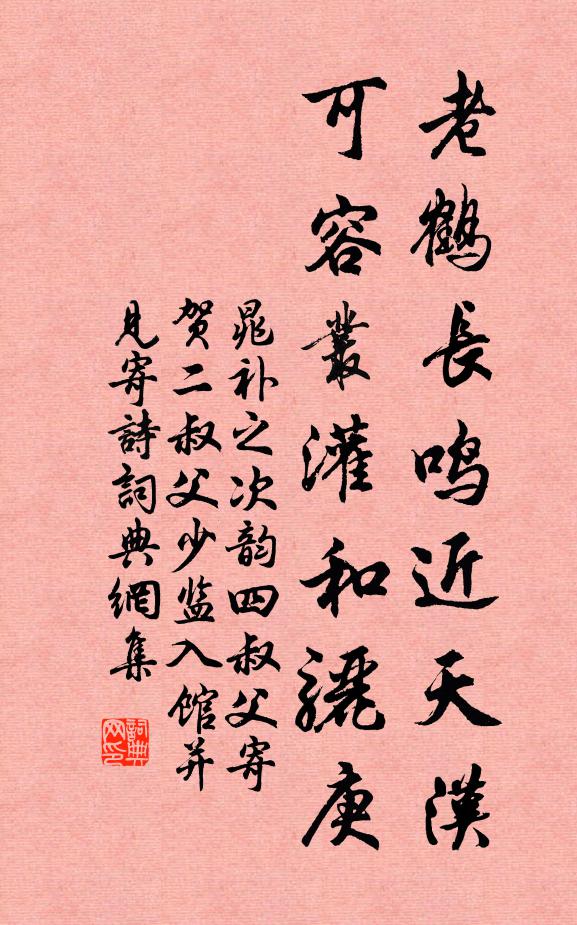 老鹤長鸣近天漢
可容叢灌和驪庚
晁补之次韵四叔父寄
贺二叔父少监入馆并
見寄詩詞典網集
詞典网印